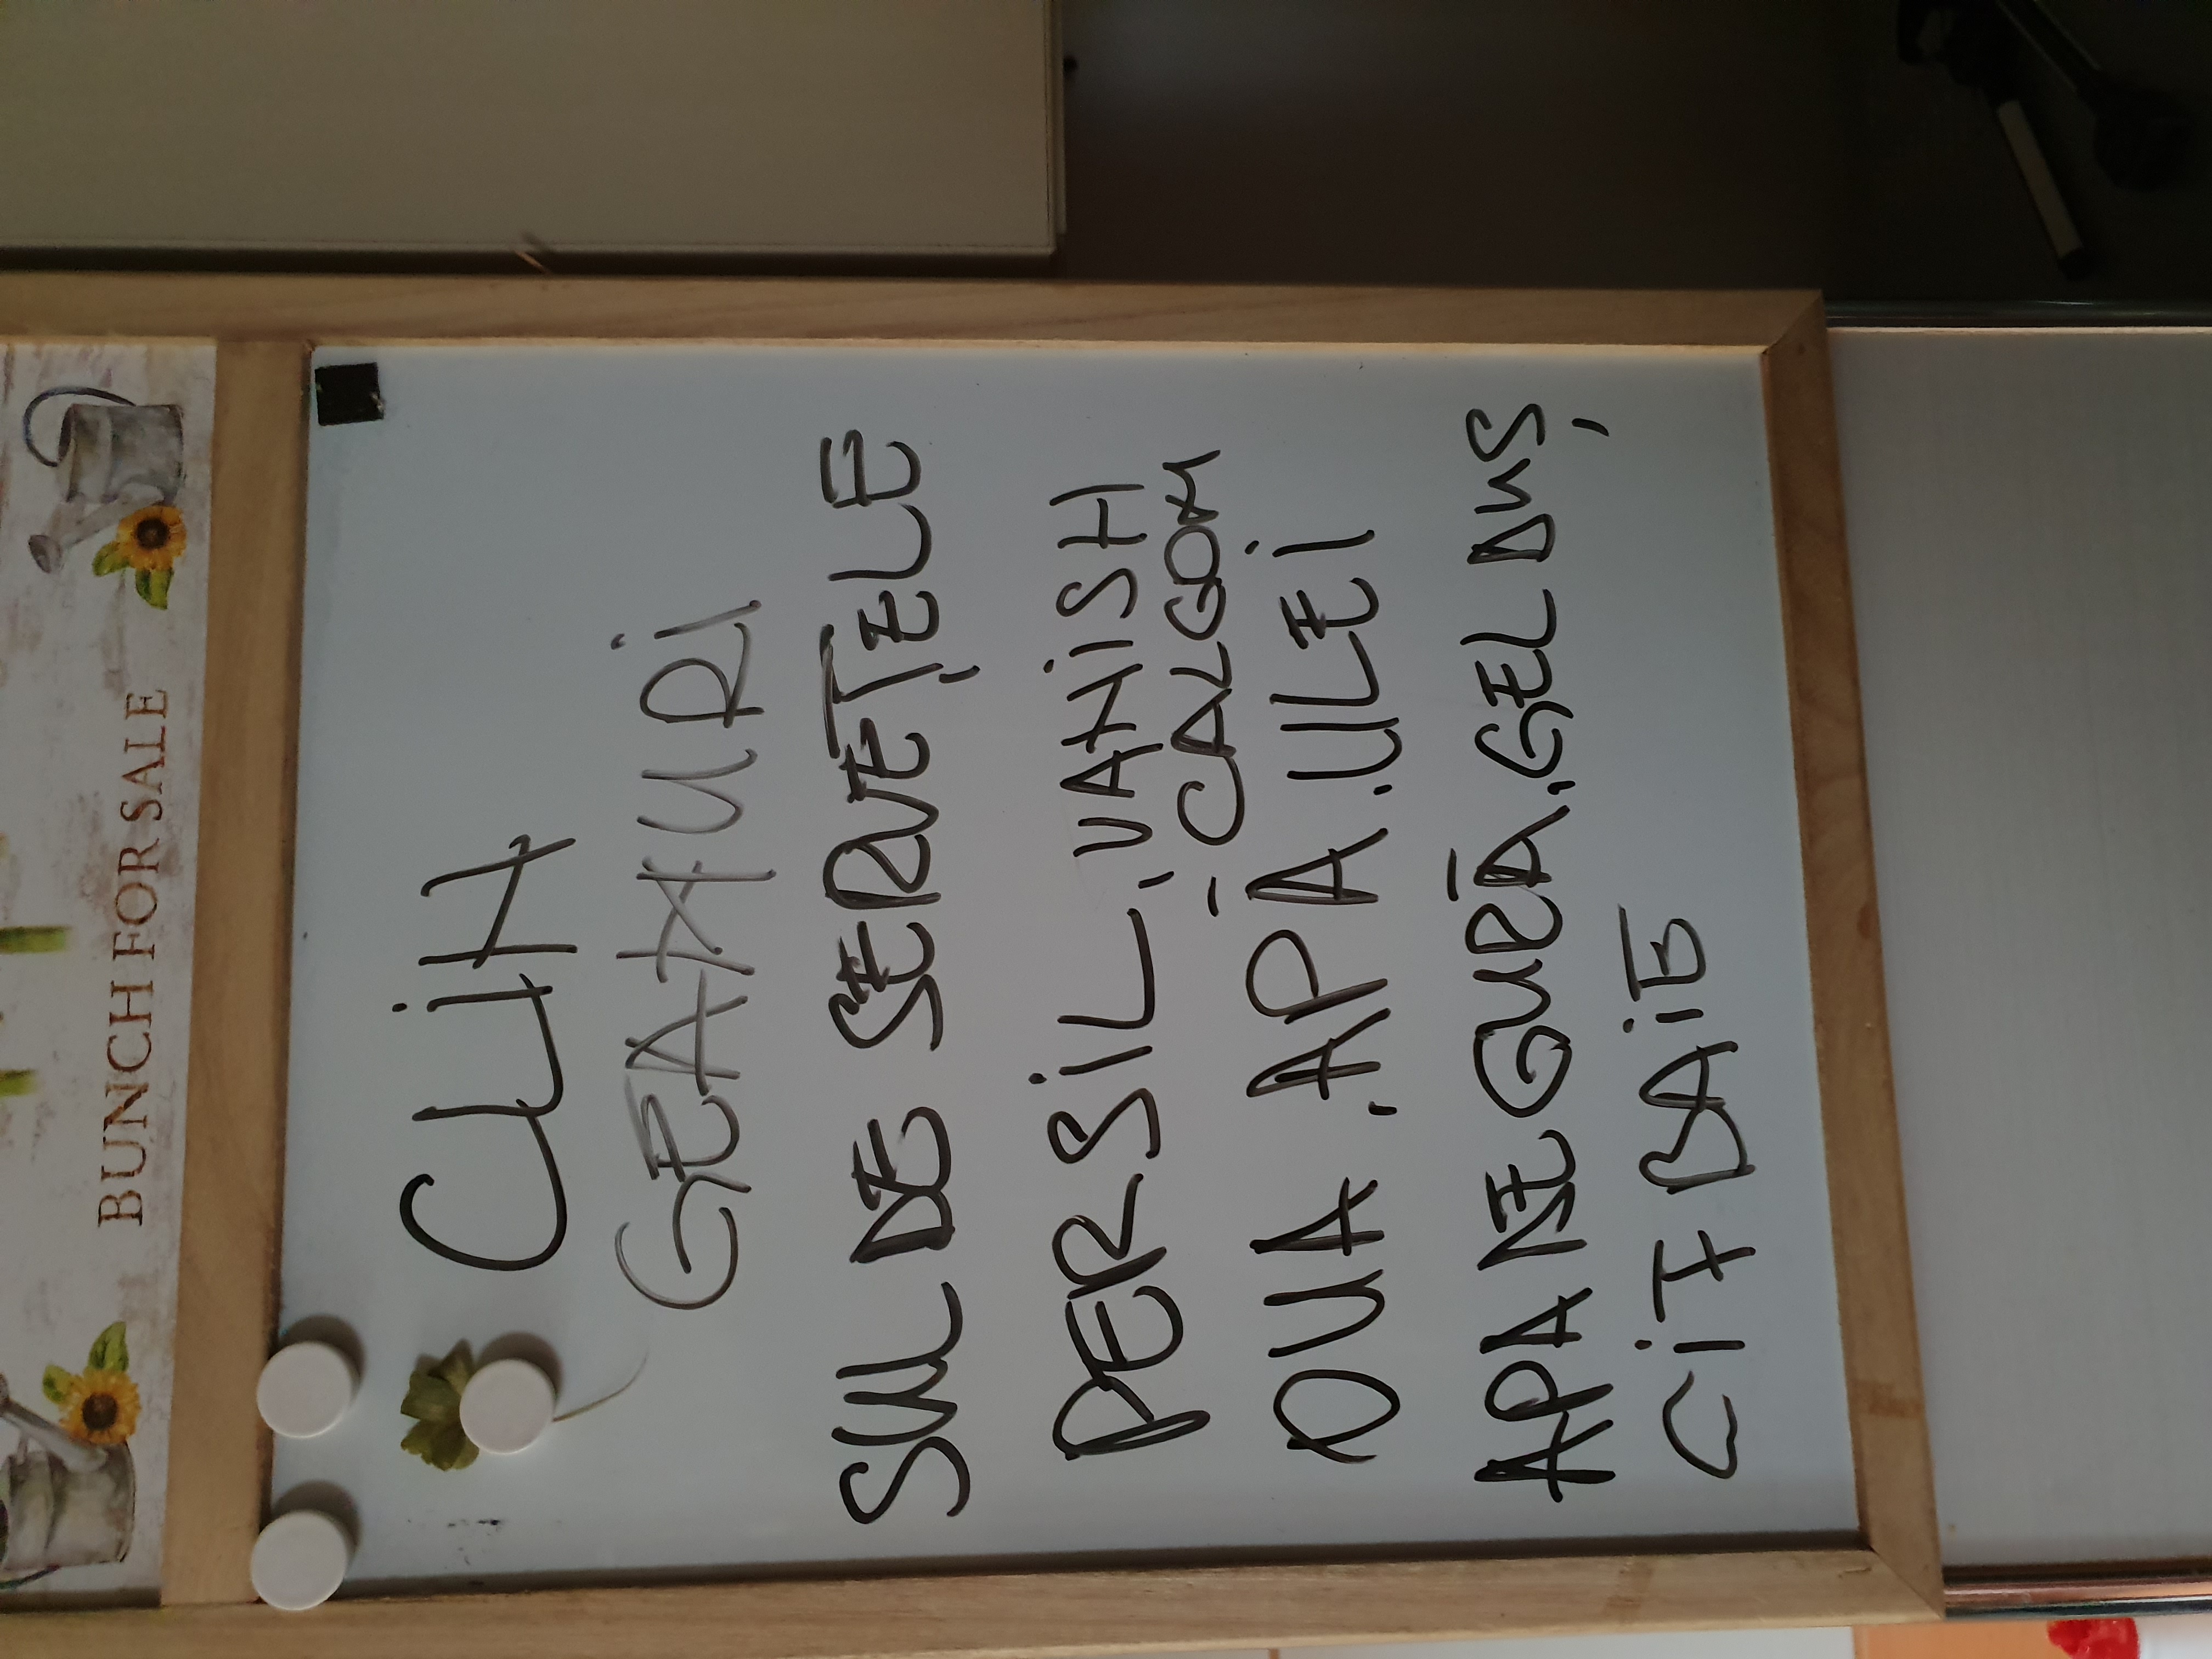 BUNCH FOR SALE
CLIN
GEAMURI
SUL DE SERVETELE
PERSIL, VANISH
- CALGON
OUA, APA, ULEI
APA DE GURĂ, GEL DUS,
CIF BAIE